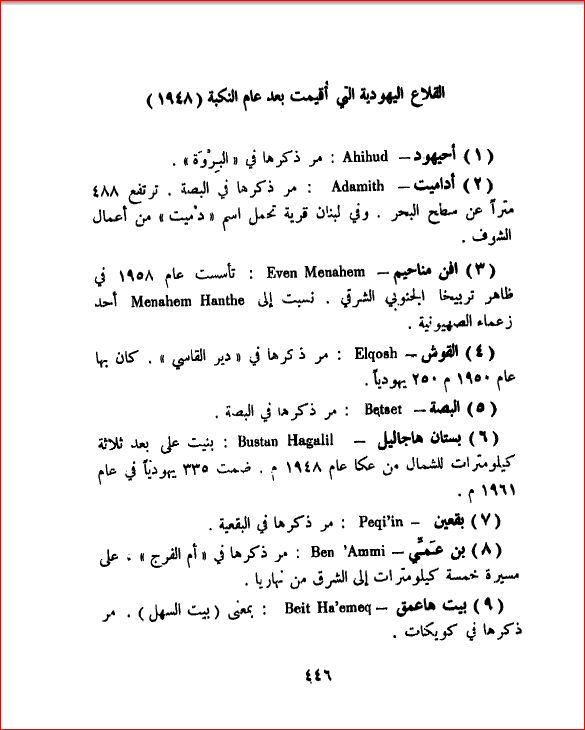 القلاع اليهودية التي أقيمت بعد عام النكبة ( ١٩٤٨ )
( ١ ) أحيهود – Ahihud : مر ذكرها في « البِرْوَة » .
( ٢ ) أداميت – Adamith : مر ذكرها في البصة . ترتفع ٤٨٨
متراً عن سطح البحر . وفي لبنان قرية تحمل اسم « دْميت » من أعمال
الشوف .
( ٣ ) افن مناحيم – Even Menahem : تأسست عام ١٩٥٨ في
ظاهر تربيخا الجنوبي الشرقي . نسبت إلى Menahem Hanthe أحد
زعماء الصهيونية .
( ٤ ) القوش – Elqosh : مر ذكرها في « دير القاسي » . كان بها
عام ١٩٥٠ م ٢٥٠ يهودياً .
( ٥ ) البصة – Betset : مر ذكرها في البصة .
( ٦ ) بستان هاجاليل – Bustan Hagalil : بنيت على بعد ثلاثة
كيلومترات للشمال من عكا عام ١٩٤٨ م . ضمت ٣٣٥ يهودياً في عام
١٩٦١ م .
( ٧ ) بقعين – Peqi'in : مر ذكرها في البقعية .
( ٨ ) بن عَمَّي – Ben 'Ammi : مر ذكرها في « أم الفرج » ، على
مسيرة خمسة كيلومترات إلى الشرق من نهاريا .
( ٩ ) بيت هاعمق – Beit Ha'emeq : بمعنى ( بيت السهل ) . مر
ذكرها في كويكات .
٤٤٦